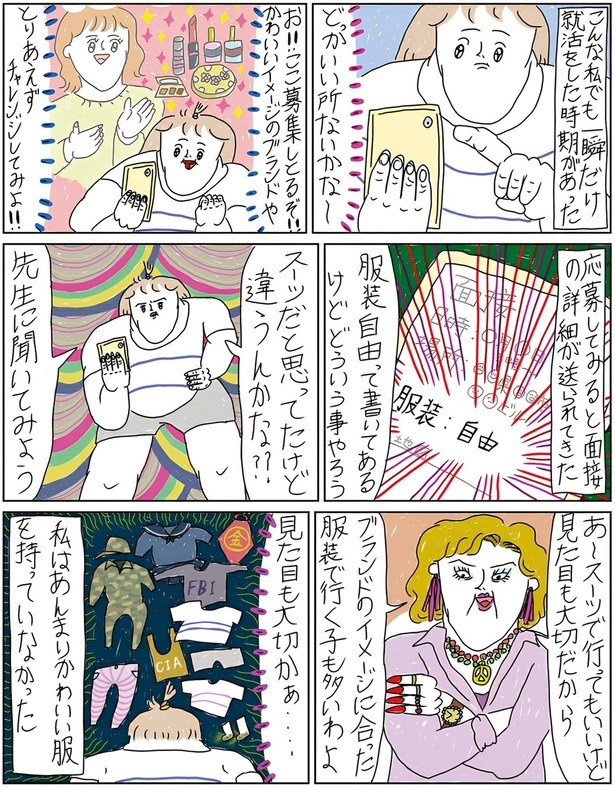 こんな私でも一瞬だけ
就活をした時期があった
どっかいい所ないかな〜
お!!ここ募集しとるぞ!!
かわいいイメージのブランドや
とりあえず
チャレンジしてみよ!!
応募してみると面接
の詳細が送られてきた
面接
日時:〇月〇日
場所:
服装:自由
服装自由って書いてある
けどどういう事やろう
スーツだと思ってたけど
違うんかな??
先生に聞いてみよう
あ〜スーツで行ってもいいけど
見た目も大切だから
ブランドのイメージに合った
服装で行く子も多いわよ
見た目も大切かぁ・・・・
金
FBI
CIA
私はあんまりかわいい服
を持っていなかった